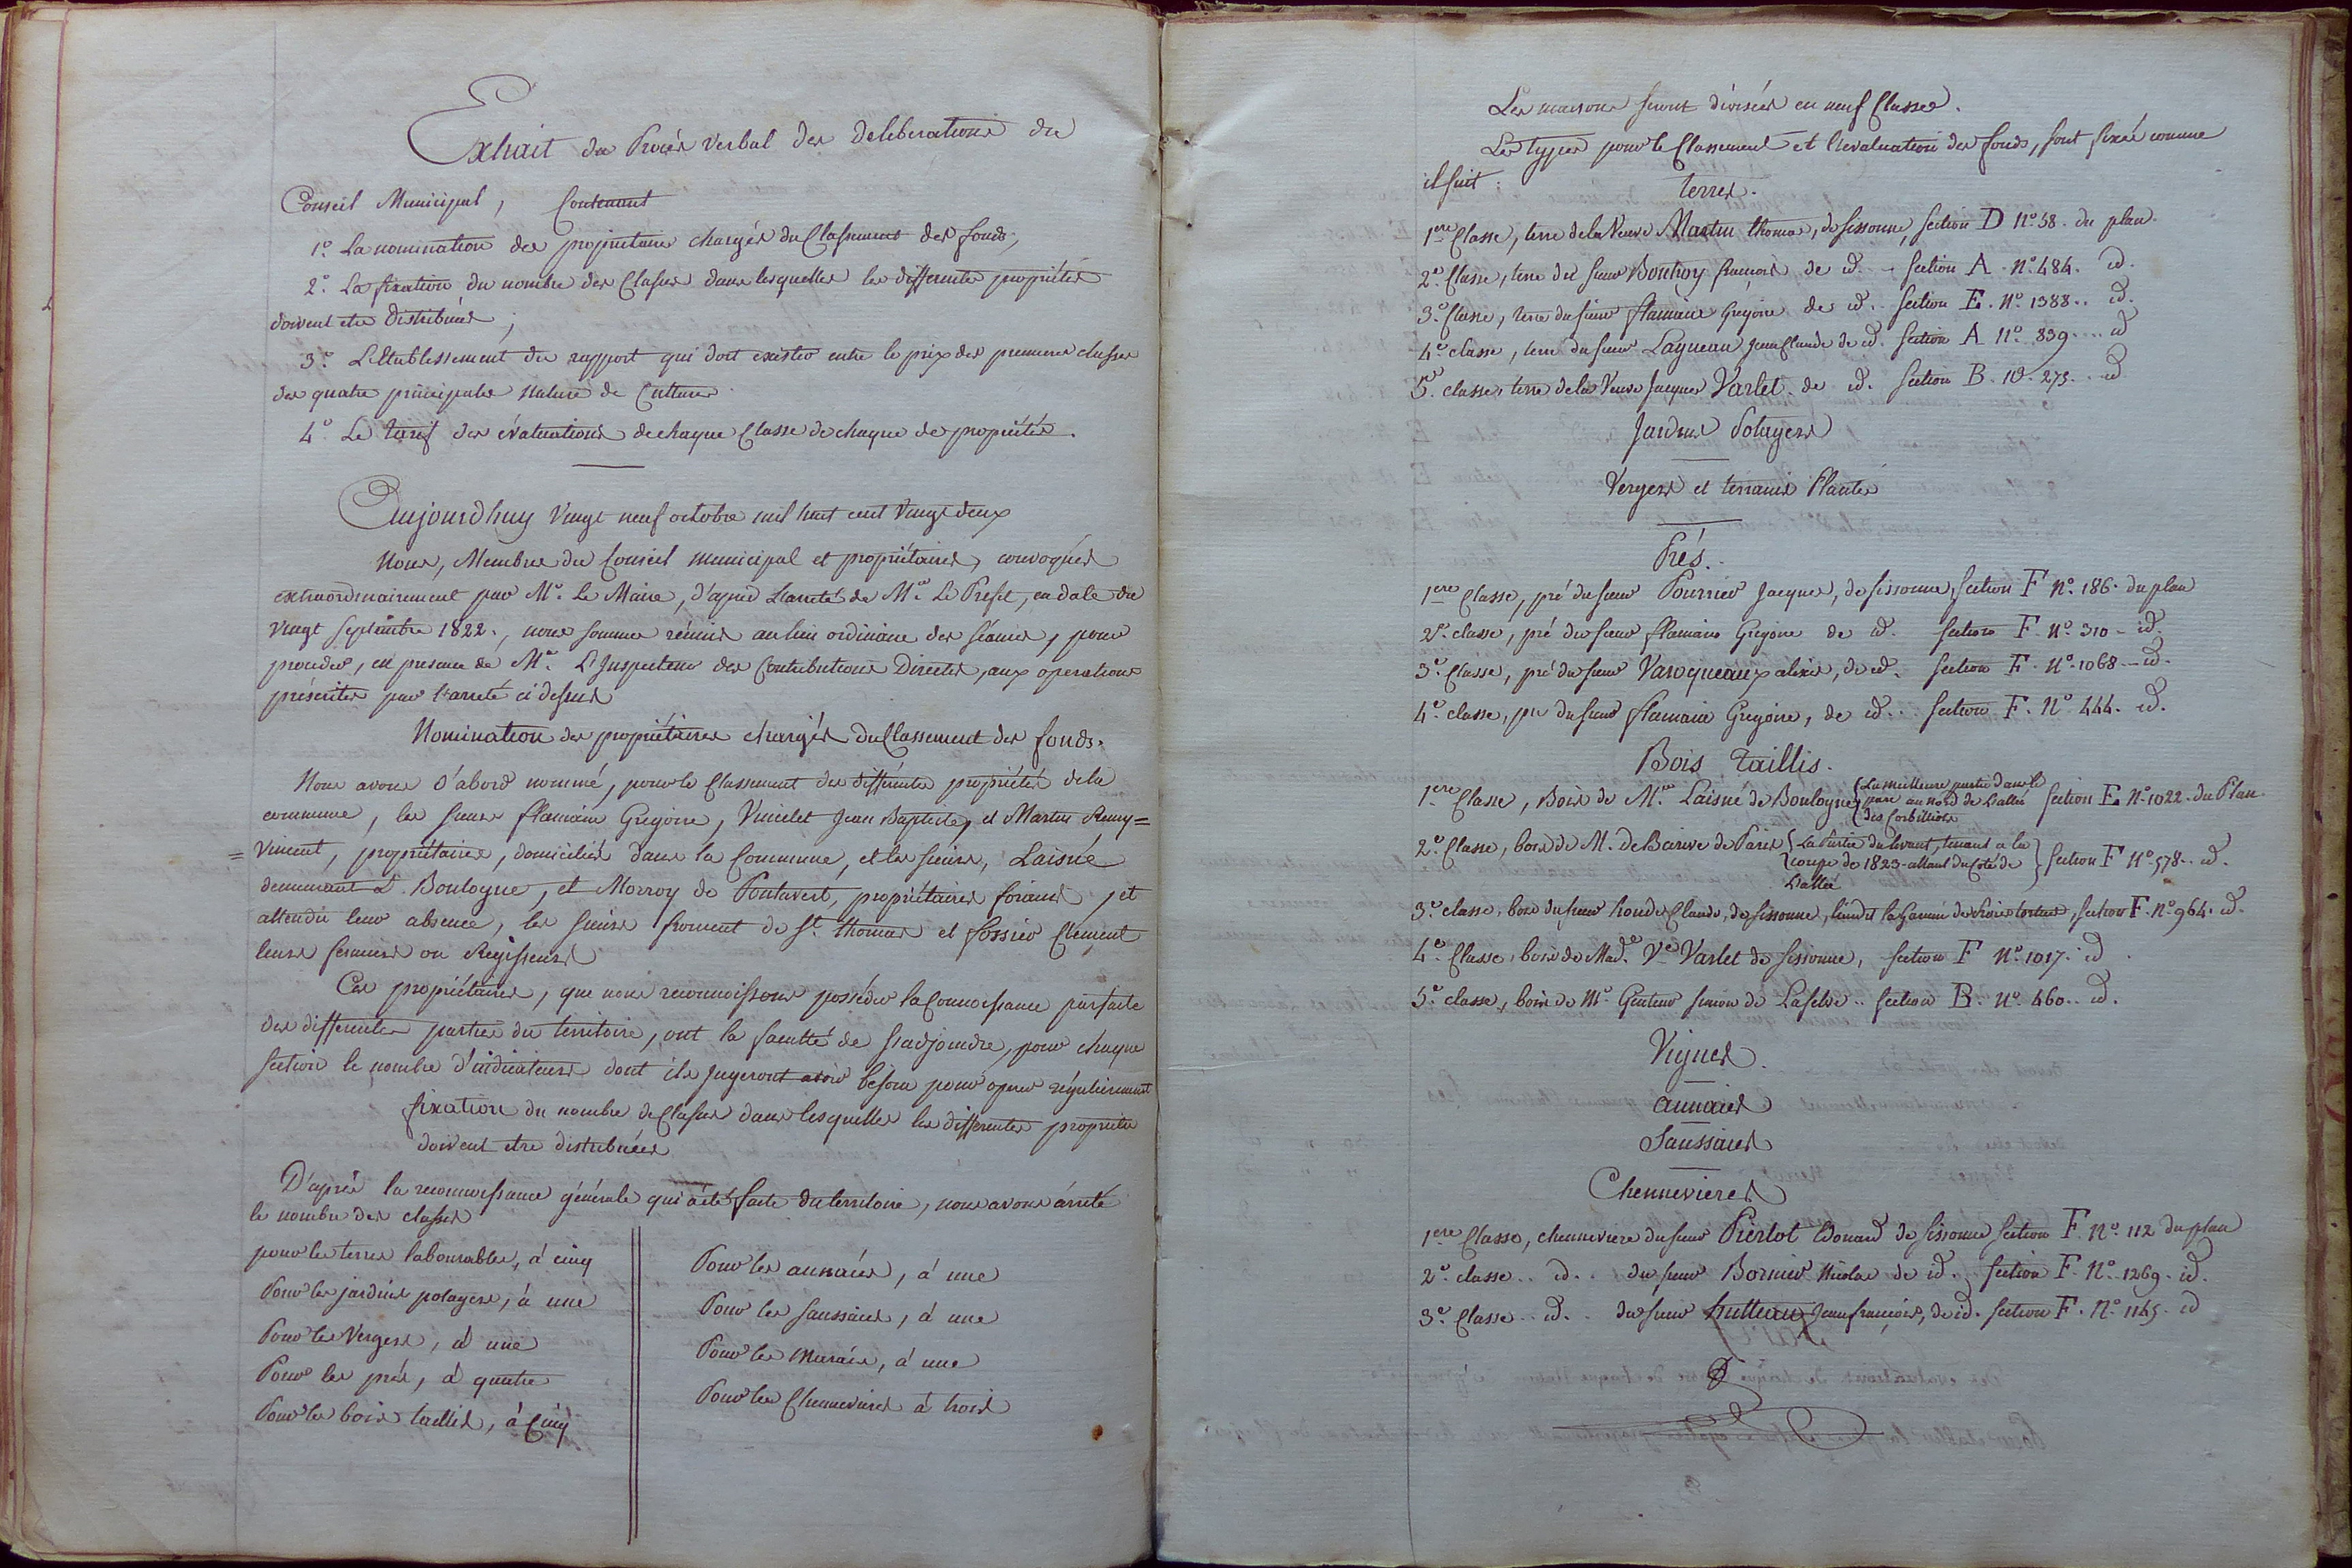 Extrait du Procès Verbal des deliberations du
Conseil Municipal, Contenant
1.º La nomination des proprietaires chargés du Classement des fonds;
2.º La fixation du nombre des Classes dans lesquelles les differentes propriétés
doivent etre distribuées;
3.º L'Etablissement du rapport qui doit exister entre le prix des premieres classes
des quatre principales natures de Cultures
4.º Le tarif des évaluations de chaque Classe de chaque de propriétés.
Aujourdhuy Vingt neuf octobre mil huit cent Vingt deux
Nous, Membres du Conseil municipal et propriétaires, convoqués
extraordinairement par Mr. Le Maire, d'après L'arreté de Mr. Le Prefet, en date du
Vingt Septembre 1822., nous sommes réunis au lieu ordinaire des séances, pour
proceder, en presence de Mr. L'Inspecteur des Contributions Directes, aux operations
préscrites par l'arreté ci dessus
Nomination des propriétaires chargés du Classement des fonds.
Nous avons d'abord nommé, pour le Classement des différentes propriétés de la
commune, les sieurs flamain Gregoire, Vincelet Jean Baptiste, et Martin Remy=
=Vincent, propriétaires, domiciliés dans la Commune, et les sieurs, Laisné
demeurant à Boulogne, et Morroy de Pontavert, propriétaires forains, et
attendu leur absence, les sieurs froment de St. thomas et fossier Clement
leurs fermiers ou Regisseurs
Ces propriétaires, que nous reconnoissons posséder la Connoissance parfaite
des differentes parties du territoire, ont la faculté de s'adjoindre, pour chaque
section le nombre d'indicateurs dont ils jugeront avoir besoin pour operer régulierement
fixation du nombre de Classes dans lesquelles les differentes propriétés
doivent etre distribuées
D'après la reconnoissance générale qui a été faite du territoire, nous avons arreté
le nombre des classes
pour les terres labourables, à cinq
Pour les jardins potagers, à une
Pour les Vergers, à une
Pour les prés, à quatre
Pour les bois taillis, à Cinq
Pour les aunaies, à une
Pour les saussaies, à une
Pour les Marais, à une
Pour les Chennevieres à trois
Les maisons seront divisées en neuf Classes.
Les types pour le Classement et l'évaluation des fonds, sont fixés comme
il suit:
terres.
1ere Classe, terre de la Veuve Martin thomas, de sissonne, Section D Nº. 58. du plan.
2.e Classe, terre du sieur Bontroy francois de id. Section A. Nº. 484. id.
3.e Classe, terre du sieur flamain Gregoire de id.. Section E. Nº. 1388.. id.
4.e classe, terre du sieur Lagneau Jean Claude de id. Section A Nº. 839... id
5.e classe, terre de la Veuve Jacques Varlet. de id. Section B. Nº. 275.. id
Jardins Potagers
Vergers et terrains Plantés
Prés.
1ere Classe, pré du sieur Pourrier Jacques, de sissonne, Section F Nº. 186. du plan
2.e classe, pré du sieur flamain Gregoire de id. Section F. Nº. 310 - id.
3.e Classe, pré du sieur Varoqueaux alexis, de id. Section F. Nº. 1068 - id.
4.e classe, pré du sieur flamain Gregoire, de id.. Section F. Nº. 444. id.
Bois taillis.
1ere Classe, Bois de Mr. Laisné de Boulogne {La meilleure partie dans le
parc au nord de L'allée Section E Nº. 1022. du Plan.
des Corbillions
2.e Classe, bois de M. de Barive de Paris {La Partie du levant, tenant a la
coupe de 1823 allant du Coté de } Section F Nº. 578.. id.
L'allée
3.e classe, bois du sieur houde Claude, de sissonne, lieudit la Garenne de , Section F. Nº. 964. id.
4.e Classe, bois de Made. Ve. Varlet de sissonne, Section F Nº. 1017. id.
5.e classe, bois de Mr. simon de Laselve.. Section B. Nº. 460.. id.
Vignes
aunaies
Saussaies
Chennevieres
1ere Classe, chenneviere du sieur Pierlot Edouard de sissonne Section F. Nº. 112 du plan
2.e classe.. id.. du sieur Bornier Nicolas de id.. Section F. Nº. 1269. id.
3.e Classe.. id.. du sieur hutteau Jean françois, de id. Section F. Nº. 1145. id